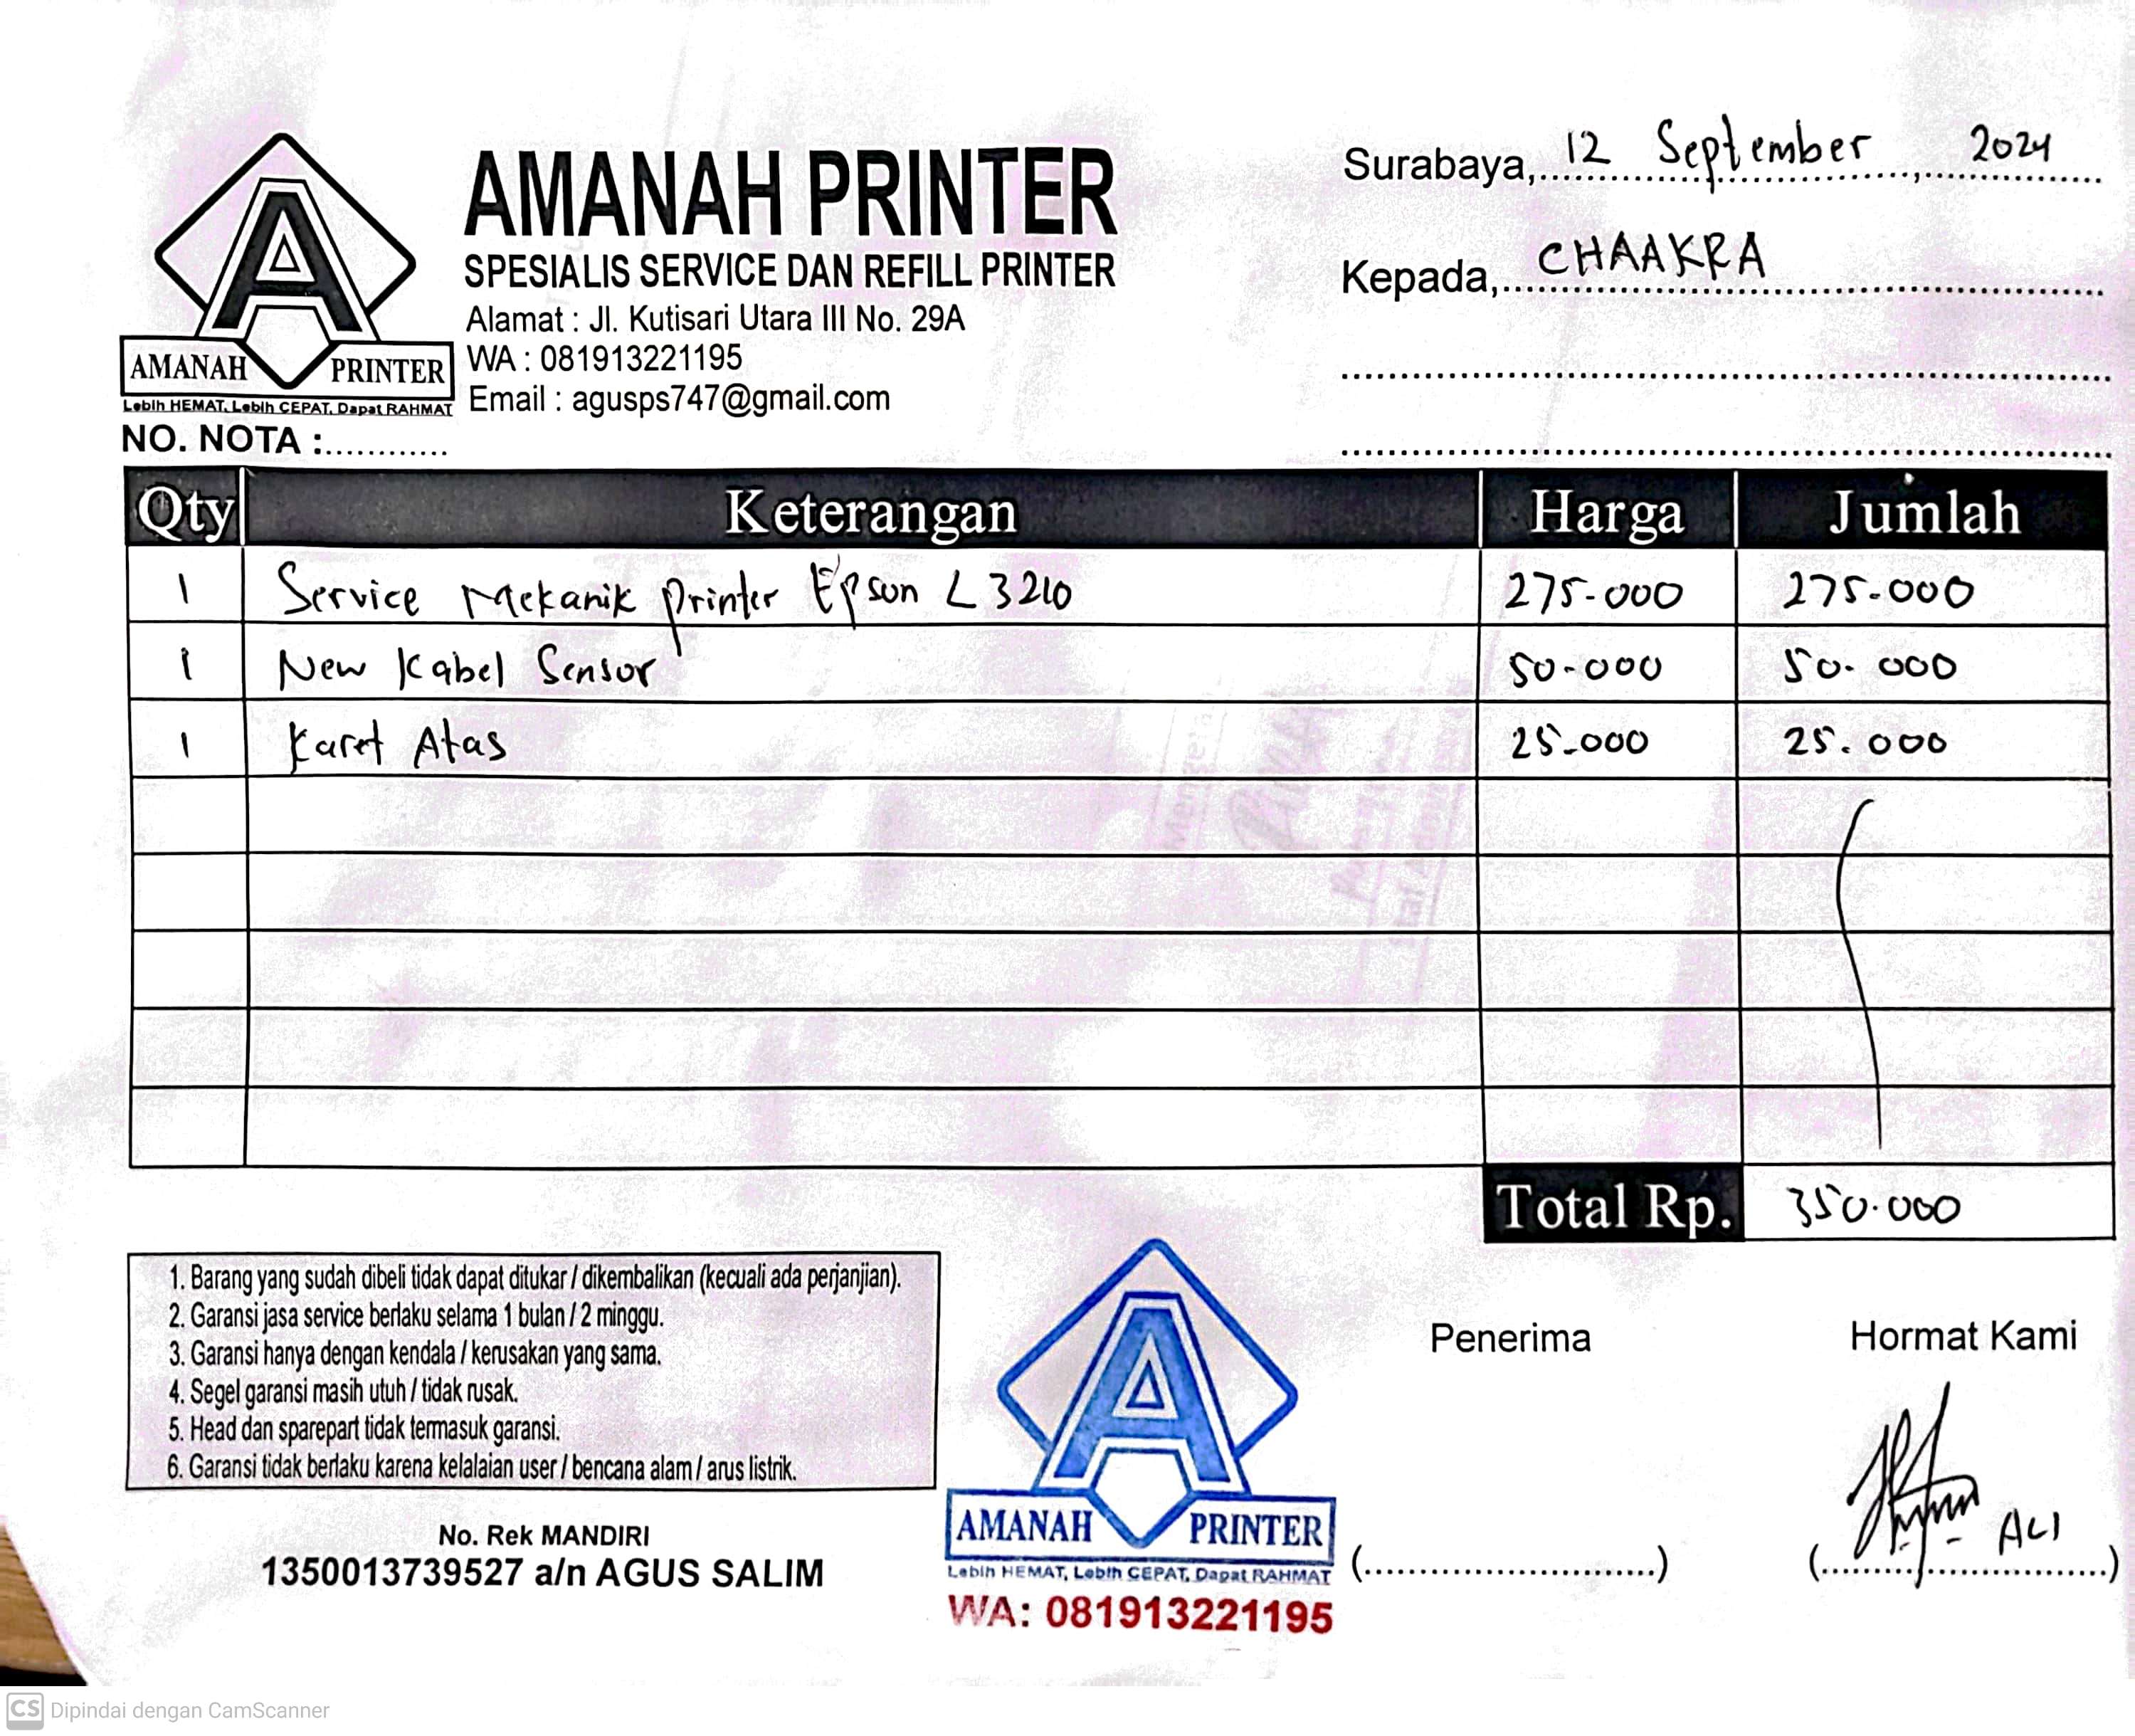 AMANAH PRINTER
SPESIALIS SERVICE DAN REFILL PRINTER
Alamat : Jl. Kutisari Utara III No. 29A
WA : 081913221195
Email : agusps747@gmail.com
A
AMANAH PRINTER
Lebih HEMAT, Lebih CEPAT, Dapat RAHMAT
NO. NOTA :............
Surabaya, 12 September, 2024
Kepada, CHAAKRA
Qty Keterangan Harga Jumlah
1 Service Mekanik Printer Epson L3210 275.000 275.000
1 New Kabel Sensor 50.000 50.000
1 Karet Atas 25.000 25.000
Total Rp. 350.000
1. Barang yang sudah dibeli tidak dapat ditukar / dikembalikan (kecuali ada perjanjian).
2. Garansi jasa service berlaku selama 1 bulan / 2 minggu.
3. Garansi hanya dengan kendala / kerusakan yang sama.
4. Segel garansi masih utuh / tidak rusak.
5. Head dan sparepart tidak termasuk garansi.
6. Garansi tidak berlaku karena kelalaian user / bencana alam / arus listrik.
No. Rek MANDIRI
1350013739527 a/n AGUS SALIM
A
AMANAH PRINTER
Lebih HEMAT, Lebih CEPAT, Dapat RAHMAT
WA: 081913221195
Penerima
(............................)
Hormat Kami
ALI
(............................)
CS Dipindai dengan CamScanner